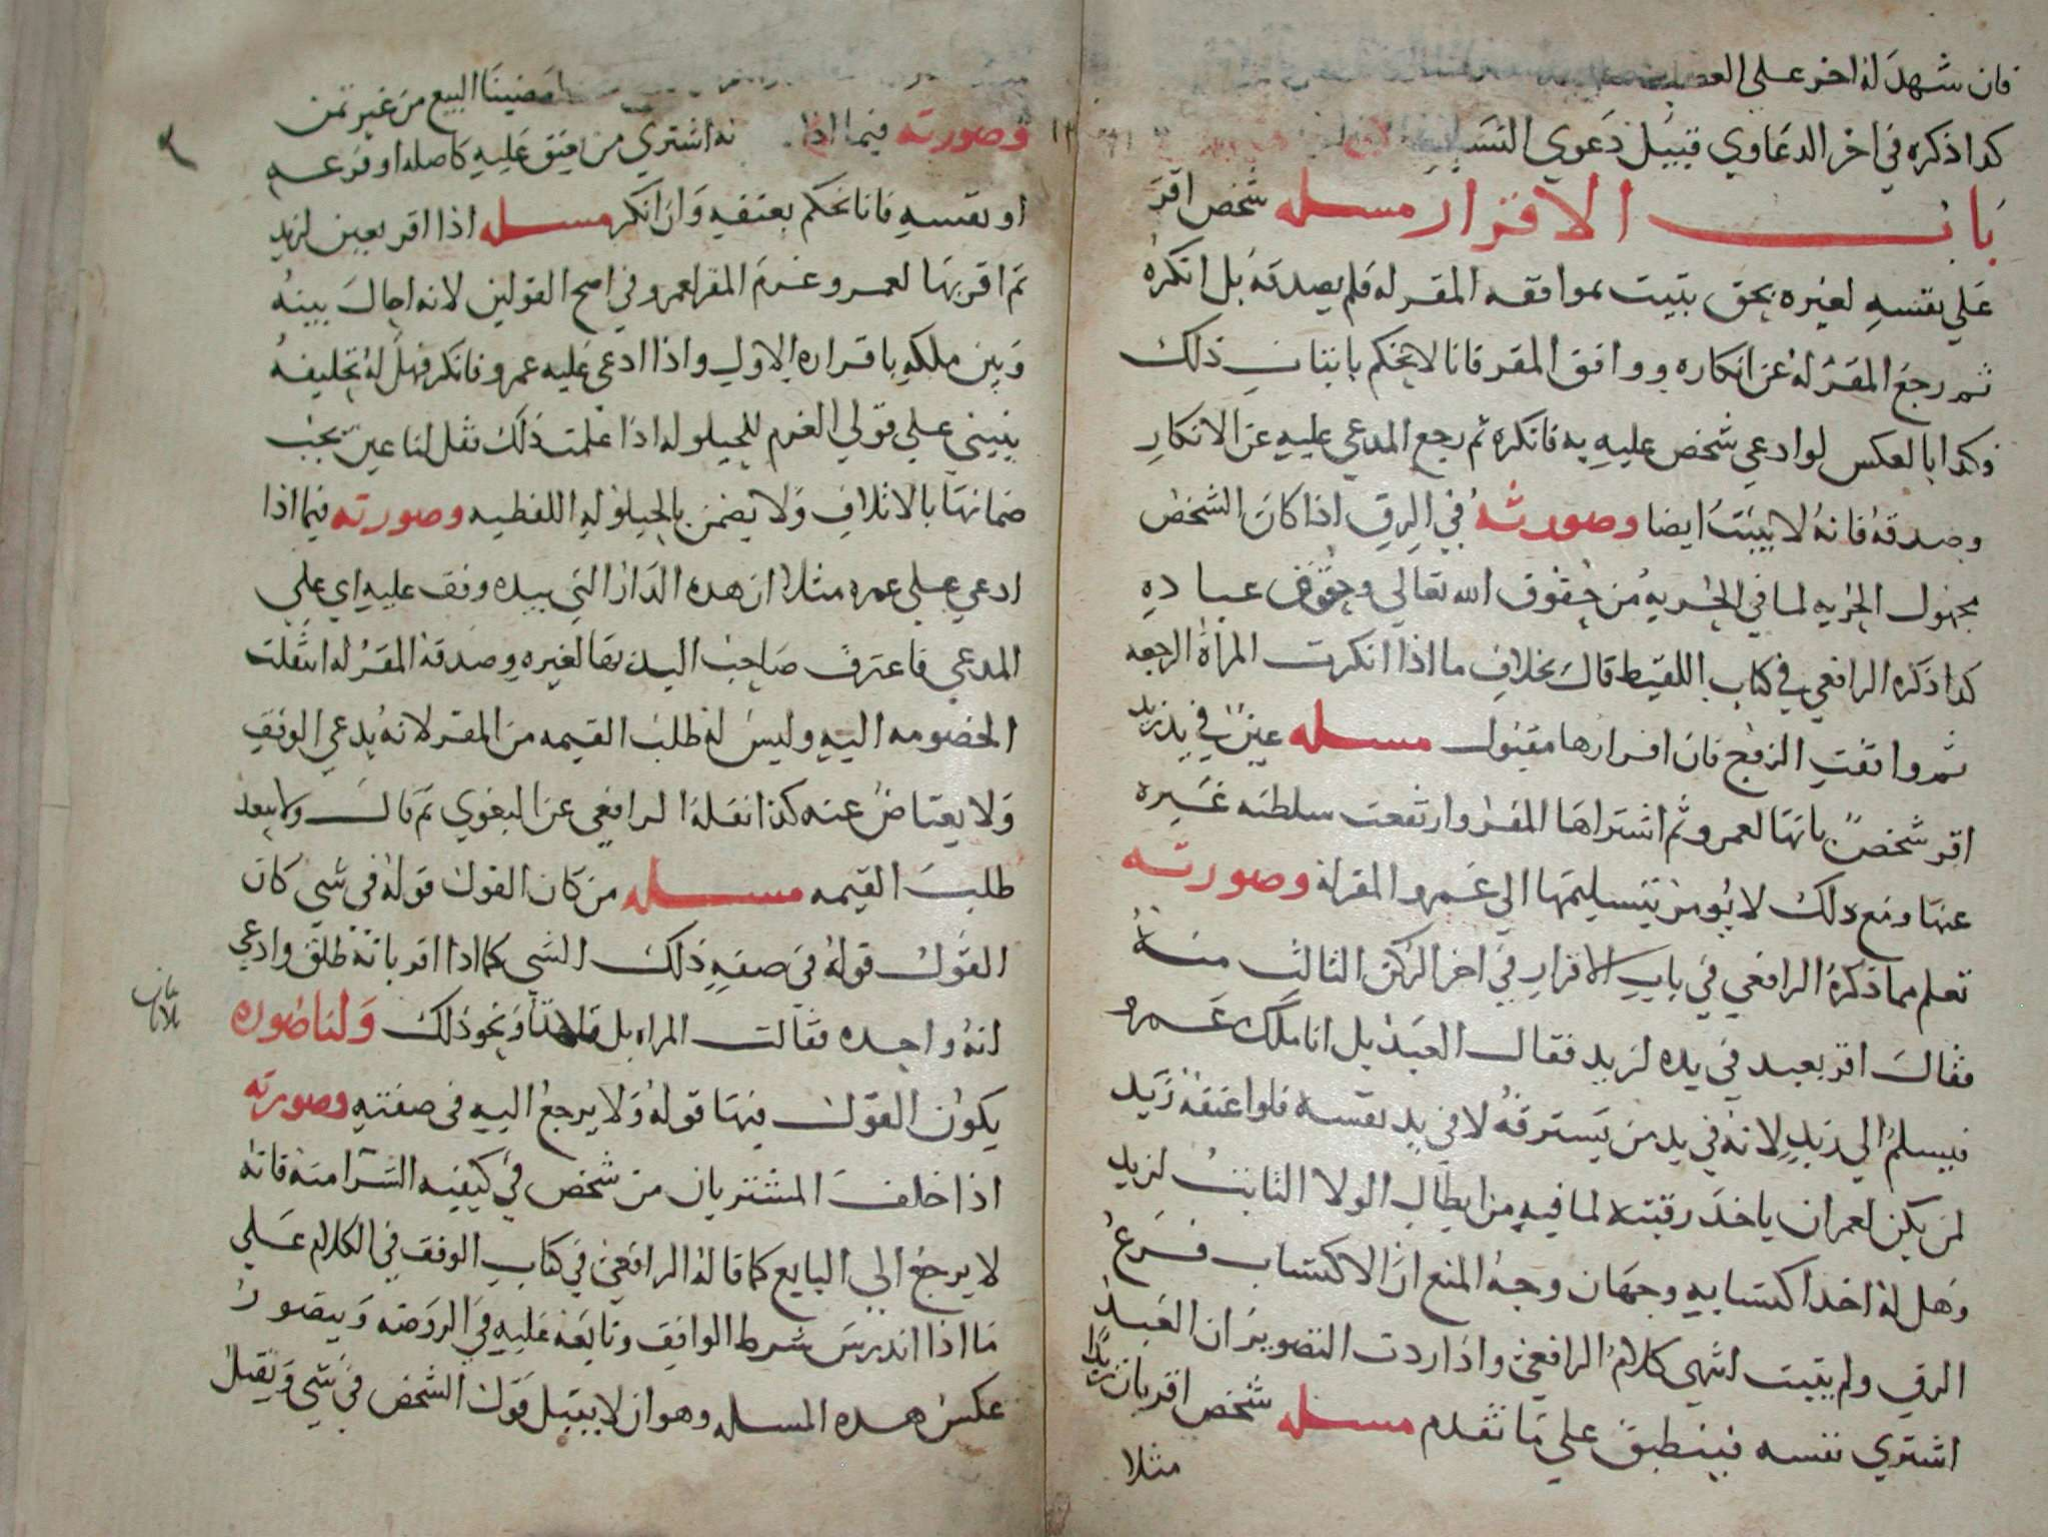 فان شهد له اخر على
كدا ذكره في اخر الدعاوي قبيل دعوي النسب
باب الاقرار مسله شخص اقر
علي نفسه لغيره بحق يثبت بموافقه المقر له فلم يصدقه بل انكره
ثم رجع المقر له عن انكاره ووافق المقر فانا لا نحكم باثبات ذلك
وكدا بالعكس لو ادعي شخص عليه به فانكره ثم رجع المدعي عليه عن الانكار
وصدقه فانه لا يثبت ايضا وصورته في الرق اذا كان الشخص
مجهول الحريه لما في الحريه من حقوق الله تعالي وحقوق عباده
كدا ذكره الرافعي في كتاب اللقيط قال بخلاف ما اذا انكرت المراة الرجعه
ثم وافقت الزوج فان اقرارها مقبول مسله عين في يد زيد
اقر شخص بانها لعمرو ثم اشتراها المقر وارتفعت سلطنه غيره
عنها ومع دلك لا يومر بتسليمها الي عمرو المقر له وصورته
تعلم مما ذكره الرافعي في باب الاقرار في اخر الركن الثالث منه
فقال اقر بعبد في يده لزيد فقال العبد بل انا ملك عمرو
فيسلم الي زيد لانه في يد من يسترقه لا في يد نفسه فلو اعتقه زيد
لم يكن لعمران ياخد رقبته لما فيه من ابطال الولا الثابت لزيد
وهل له اخد اكتسابه وجهان وجه المنع ان الاكتساب فرع
الرق ولم يثبت انتهي كلام الرافعي واذا اردت التصوير ان العبد
اشتري نفسه فينطبق علي ما تقدم مسله شخص اقر بان زيدا
مثلا
امضينا البيع من غير ثمن
وصورته فيما اذا انه اشتري من يعتق عليه كاصله او فرعه
او نفسه فانا نحكم بعتقه وان انكر مسله اذا اقر بعين لزيد
ثم اقر بها لعمرو غرم المقر لعمرو في اصح القولين لانه احال بينه
وبين ملكه باقراره الاول واذا ادعي عليه عمرو فانكر فهل له تحليفه
ينبني علي قولي الغرم للحيلوله اذا علمت ذلك فقل لنا عين يجب
ضمانها بالاتلاف ولا يضمن بالحيلوله اللفظيه وصورته فيما اذا
ادعي علي عمرو مثلا ان هده الدار التي بيده وقف عليه اي علي
المدعي فاعترف صاحب اليد بها لغيره وصدقه المقر له انتقلت
الخصومه اليه وليس له طلب القيمه من المقر لانه يدعي الوقف
ولا يعتاض عنه كذا نقله الرافعي عن البغوي ثم قال ولا يبعد
طلب القيمه مسله من كان القول قوله في شي كان
القول قوله في صفه ذلك الشي كما اذا اقر بانه طلق وادعي
انه واحده فقالت المراه بل ثلاثا ونحو ذلك ولنا صوره
يكون القول فيها قوله ولا يرجع اليه في صفته وصورته
اذا اختلف المشتريان من شخص في كيفيه الشرا منه فانه
لا يرجع الي البايع كما قاله الرافعي في كتاب الوقف في الكلام علي
ما اذا اندرس شرط الواقف وتابعه عليه في الروضه ويتصور
عكس هده المسله وهو ان لا يقبل قول الشخص في شي ويقبل